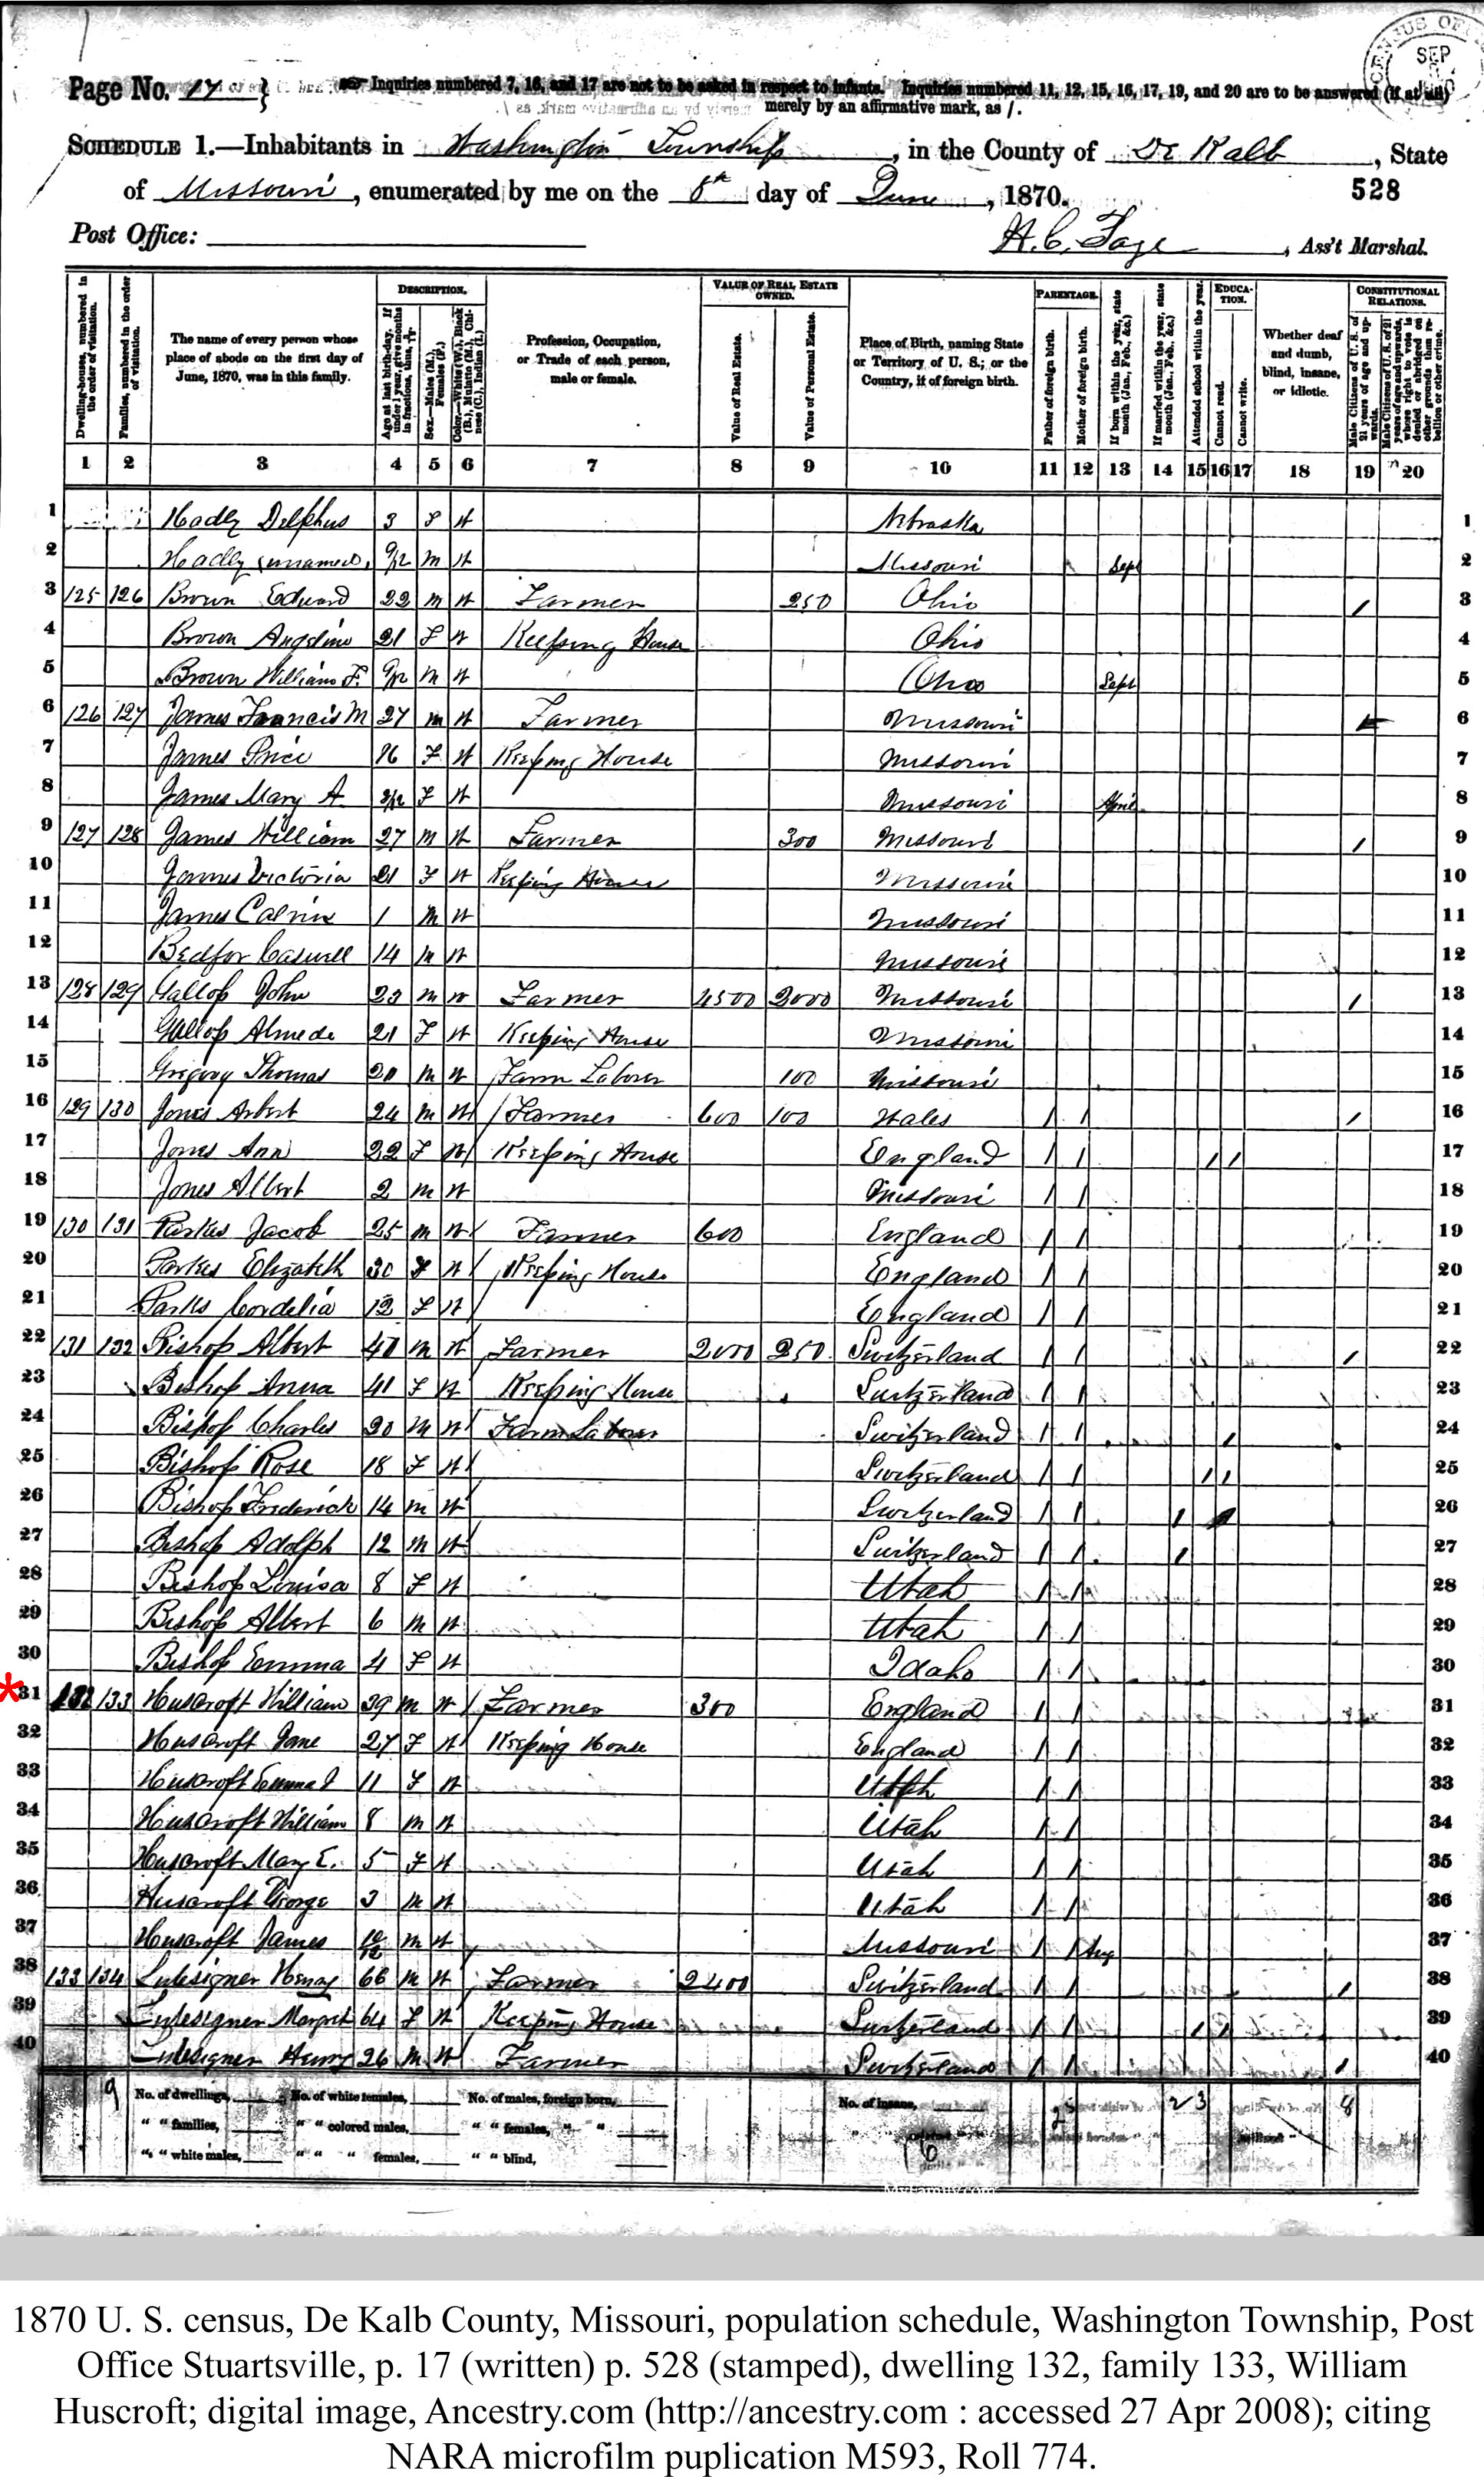 Page No. 17
Inquiries numbered 7, 16, and 17 are not to be asked in respect to infants. Inquiries numbered 11, 12, 15, 16, 17, 19, and 20 are to be answered (if at all)
merely by an affirmative mark, as /.
CENSUS OF
SEP
SCHEDULE 1.—Inhabitants in Washington Township, in the County of De Kalb, State
of Missouri, enumerated by me on the 8th day of June, 1870.
528
Post Office:
H. C. Ass't Marshal.
Dwelling-houses, numbered in the order of visitation.
Families, numbered in the order of visitation.
The name of every person whose place of abode on the first day of June, 1870, was in this family.
DESCRIPTION.
Age at last birth-day. If under 1 year, give months in fractions, thus,
Sex.—Males (M.), Females (F.)
Color.—White (W.), Black (B.), Mulatto (M.), Chinese (C.), Indian (I.)
Profession, Occupation, or Trade of each person, male or female.
VALUE OF REAL ESTATE OWNED.
Value of Real Estate.
Value of Personal Estate.
Place of Birth, naming State or Territory of U. S.; or the Country, if of foreign birth.
PARENTAGE.
Father of foreign birth.
Mother of foreign birth.
If born within the year, state month (Jan., Feb., &c.)
If married within the year, state month (Jan., Feb., &c.)
Attended school within the year.
EDUCATION.
Cannot read.
Cannot write.
Whether deaf and dumb, blind, insane, or idiotic.
CONSTITUTIONAL RELATIONS.
Male Citizens of U. S. of 21 years of age and upwards.
Male Citizens of U. S. of 21 years of age and upwards, whose right to vote is denied or abridged on other grounds than rebellion or other crime.
1 2 3 4 5 6 7 8 9 10 11 12 13 14 15 16 17 18 19 20
1 Hadly Delphus 3 F W Nebraska 1
2 Hadly (unnamed) 9/12 M W Missouri Sept 2
3 125 126 Brown Edward 22 M W Farmer 250 Ohio / 3
4 Brown Angeline 21 F W Keeping House Ohio 4
5 Brown William F. 9/12 M W Ohio Sept 5
6 126 127 James Francis M 27 M W Farmer Missouri 6
7 James Price 16 F W Keeping House Missouri 7
8 James Mary A. 2/12 F W Missouri April 8
9 127 128 James William 27 M W Farmer 300 Missouri / 9
10 James Victoria 21 F W Keeping House Missouri 10
11 James Calvin 1 M W Missouri 11
12 Bedfor Caswell 14 M W Missouri 12
13 128 129 Gallop John 23 M W Farmer 4500 2000 Missouri / 13
14 Gallop Almeda 21 F W Keeping House Missouri 14
15 Gregory Thomas 20 M W Farm Laborer 100 Missouri 15
16 129 130 Jones Arbert 24 M W / Farmer 600 100 Wales / / / 16
17 Jones Ann 22 F W / Keeping House England / / / / 17
18 Jones Albert 2 M W Missouri / / 18
19 130 131 Parkes Jacob 25 M W / Farmer 600 England / / 19
20 Parkes Elizabeth 30 F W / Keeping House England / / 20
21 Parks Cordelia 12 F W / England / / 21
22 131 132 Bishop Albert 47 M W Farmer 2000 250 Switzerland / / / 22
23 Bishop Anna 41 F W Keeping House Switzerland / / 23
24 Bishop Charles 20 M W / Farm Laborer Switzerland / / / 24
25 Bishop Rose 18 F W / Switzerland / / / / 25
26 Bishop Frederick 14 M W Switzerland / / / 26
27 Bishop Adolph 12 M W Switzerland / / / 27
28 Bishop Louisa 8 F W Utah / / 28
29 Bishop Albert 6 M W Utah / / 29
30 Bishop Emma 4 F W Idaho / / 30
* 31 132 133 Huscroft William 39 M W / Farmer 300 England / / 31
32 Huscroft Jane 27 F W Keeping House England / / 32
33 Huscroft Emma J 11 F W Utah / / 33
34 Huscroft William 8 M W Utah / / 34
35 Huscroft Mary E. 5 F W Utah / / 35
36 Huscroft George 3 M W Utah / / 36
37 Huscroft James 10/12 M W Missouri / / Aug 37
38 133 134 Henry 66 M W Farmer 2400 Switzerland / / / 38
39 Margret 64 F W Keeping House Switzerland / / / / 39
40 Henry 26 M W Farmer Switzerland / / / 40
9 No. of dwellings, No. of white females, No. of males, foreign born, No. of insane, 23 8
" " families, " " colored males, " " females, " "
" " white males, " " " females, " " blind, 6
MyFamily.com
1870 U. S. census, De Kalb County, Missouri, population schedule, Washington Township, Post
Office Stuartsville, p. 17 (written) p. 528 (stamped), dwelling 132, family 133, William
Huscroft; digital image, Ancestry.com (http://ancestry.com : accessed 27 Apr 2008); citing
NARA microfilm puplication M593, Roll 774.